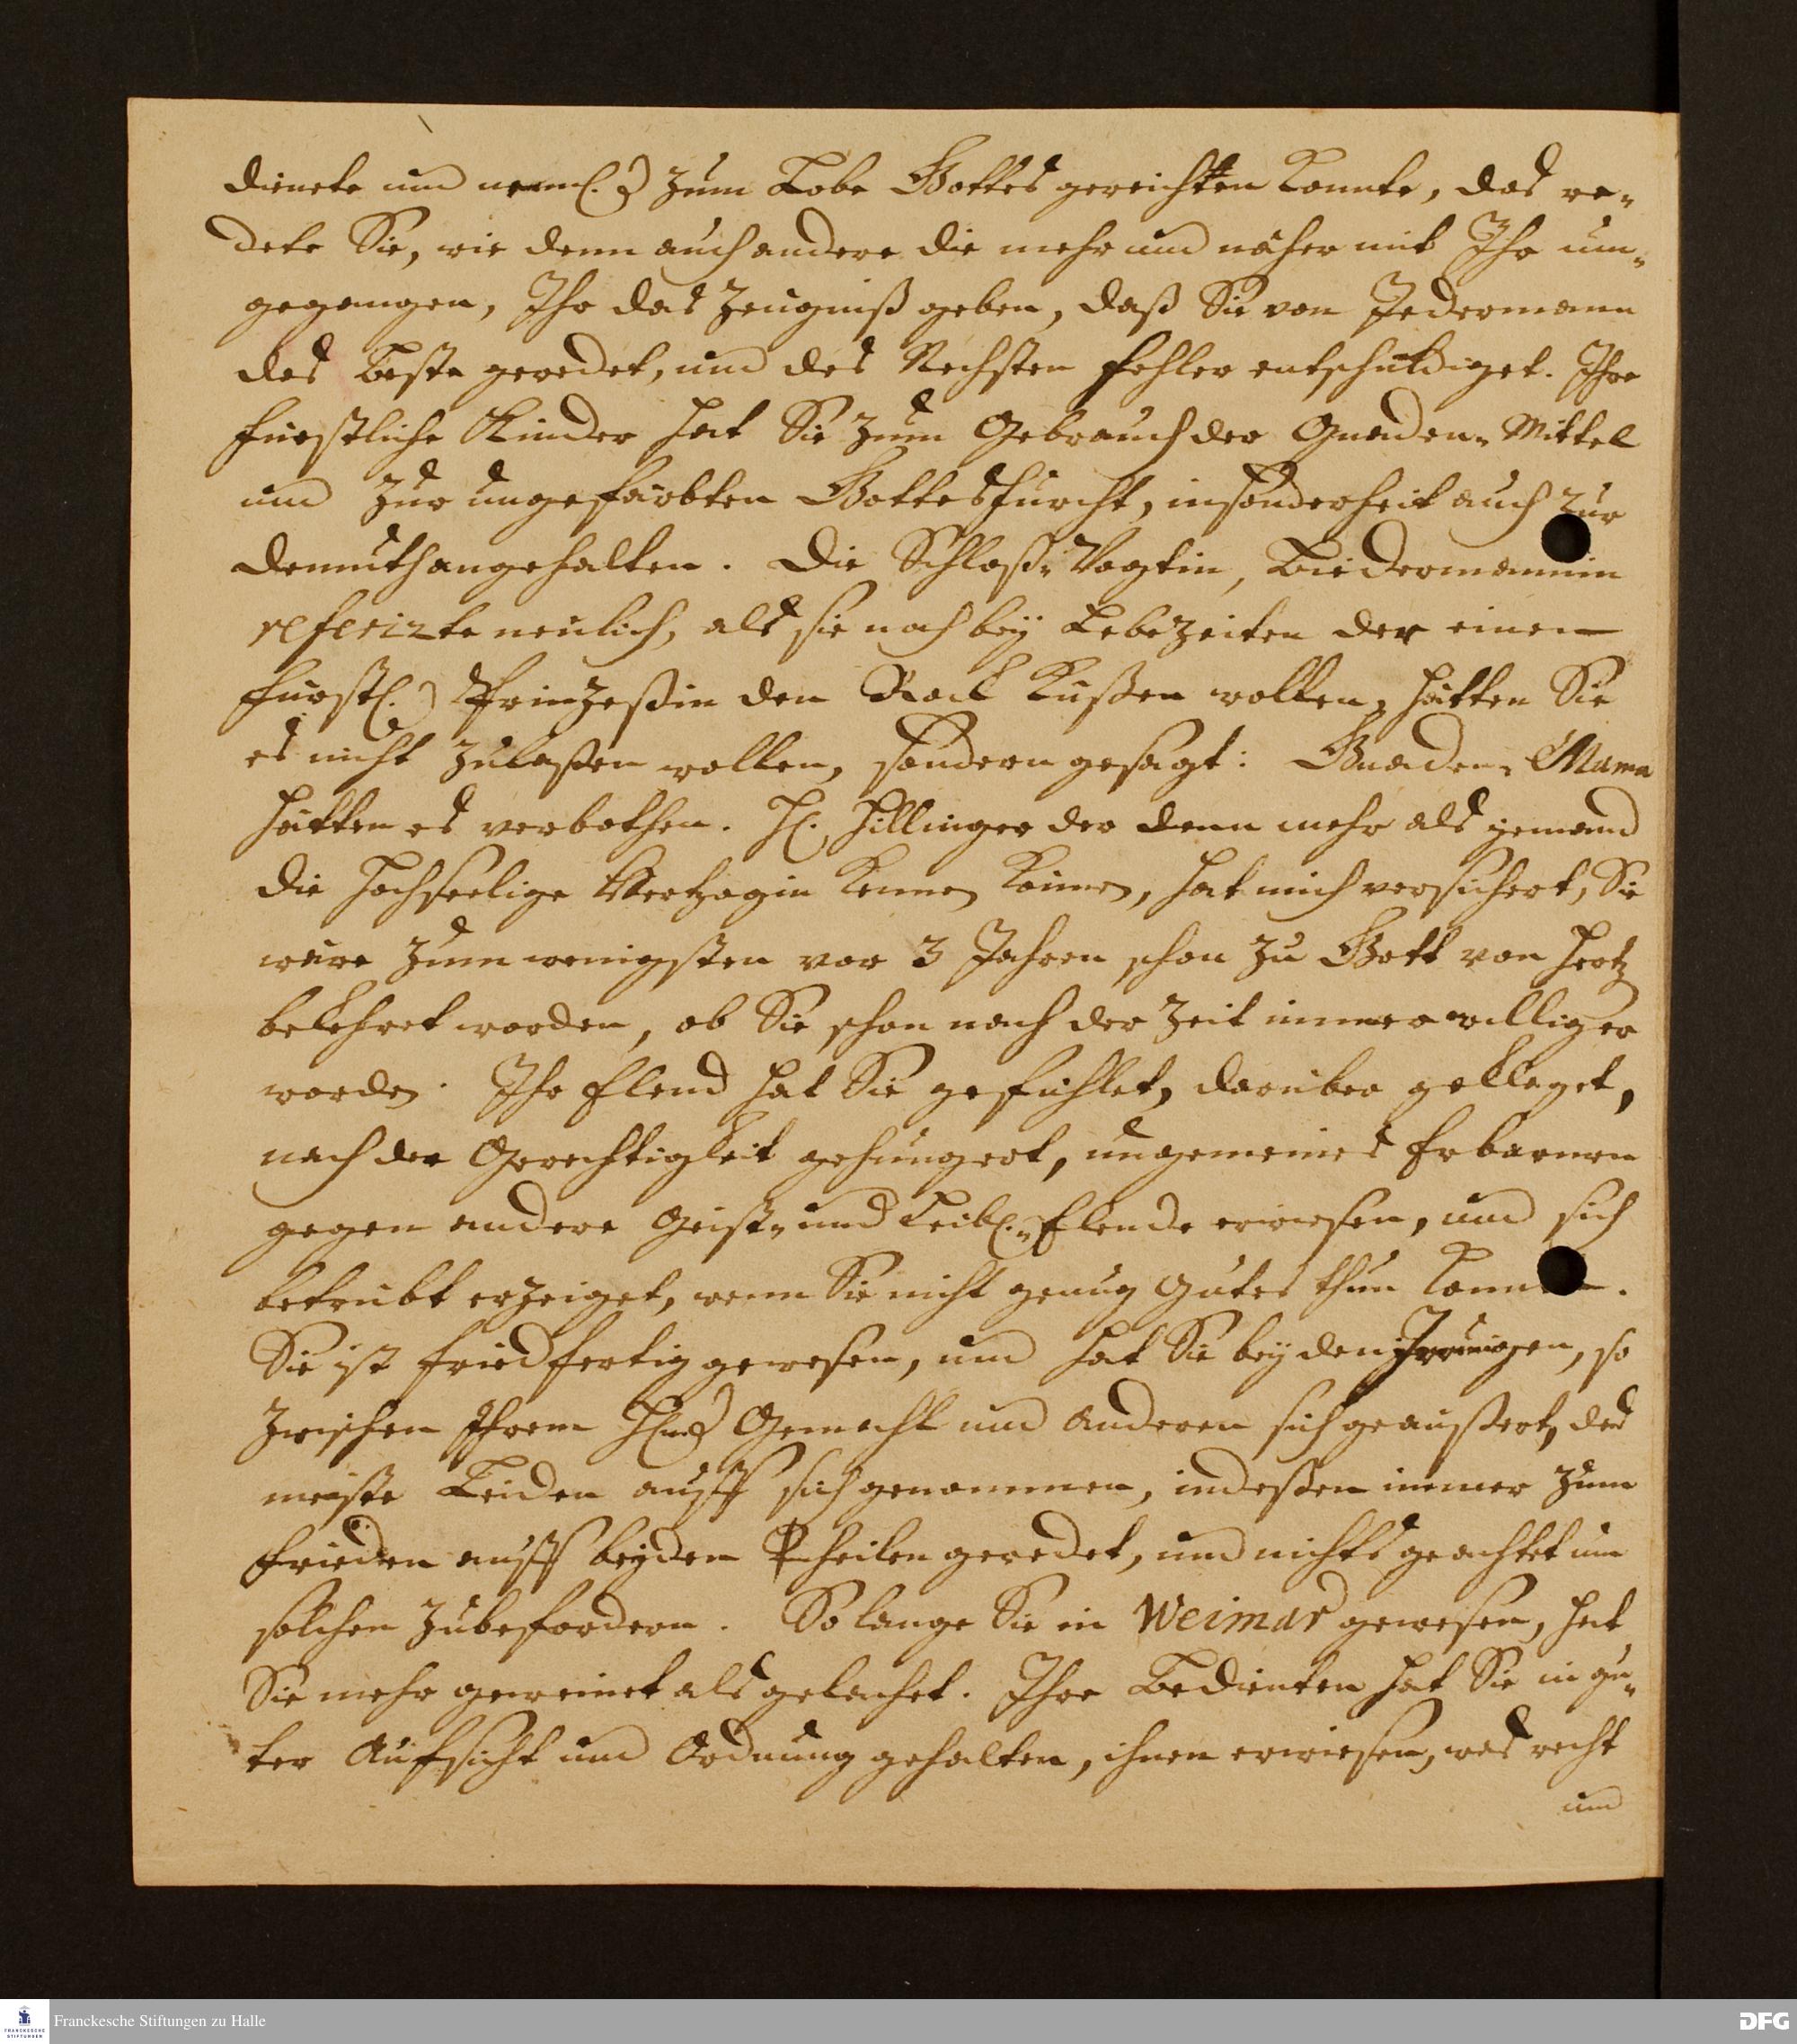 dienete und neml. zum Lobe Gottes gereichen konnte, das re-
dete Sie, wie denn auch andere die mehr und näher mit Ihr um-
gegangen, Ihr das Zeugniß geben, daß Sie von Jedermann
das Beste geredet, und des Nechsten Fehler entschuldiget. Ihre
Fürstliche Kinder hat Sie zum Gebrauch der Gnaden-Mittel
und zur ungefärbten Gottesfurcht, insonderheit auch zur
Demuth angehalten. Die Schloß-Vogtin, Biedermannin
referirte neulich, als sie noch bey Lebezeiten der einen
Fürstl. Prinzeßin den Rock küßen wollen, hätten Sie
es nicht zulaßen wollen, sondern gesagt: Gnaden-Mama
hätten es verbothen. H. Hillinger der denn mehr als jemand
die Hochseelige Hertzogin kennen können, hat mich versichert, Sie
wäre zum wenigsten vor 3 Jahren schon zu Gott von Hertz
bekehret worden, ob Sie schon nach der Zeit immer völliger
worden. Ihr Elend hat Sie gefühlet, darüber geklaget,
nach der Gerechtigkeit gehungert, ungemeines Erbarmen
gegen andere Geist- und Leibl.-Elende erwiesen, und sich
betrübt erzeiget, wenn Sie nicht genug Gutes thun können.
Sie ist friedfertig gewesen, und hat Sie bey den Irrungen, so
zwischen Ihrem Gemahl und Anderen sich geäußert, das
meiste Leiden auff sich genommen, indeßen immer zum
Frieden auff beyden Theilen geredet, und nichts geachtet um
solchen zubefördern. So lange Sie in Weimar gewesen, hat
Sie mehr geweinet als gelachet. Ihre Bedienten hat Sie in gu-
ter Aufsicht und Ordnung gehalten, ihnen erwiesen, was recht
und
Franckesche Stiftungen zu Halle
FRANCKESCHE
STIFTUNGEN
DFG